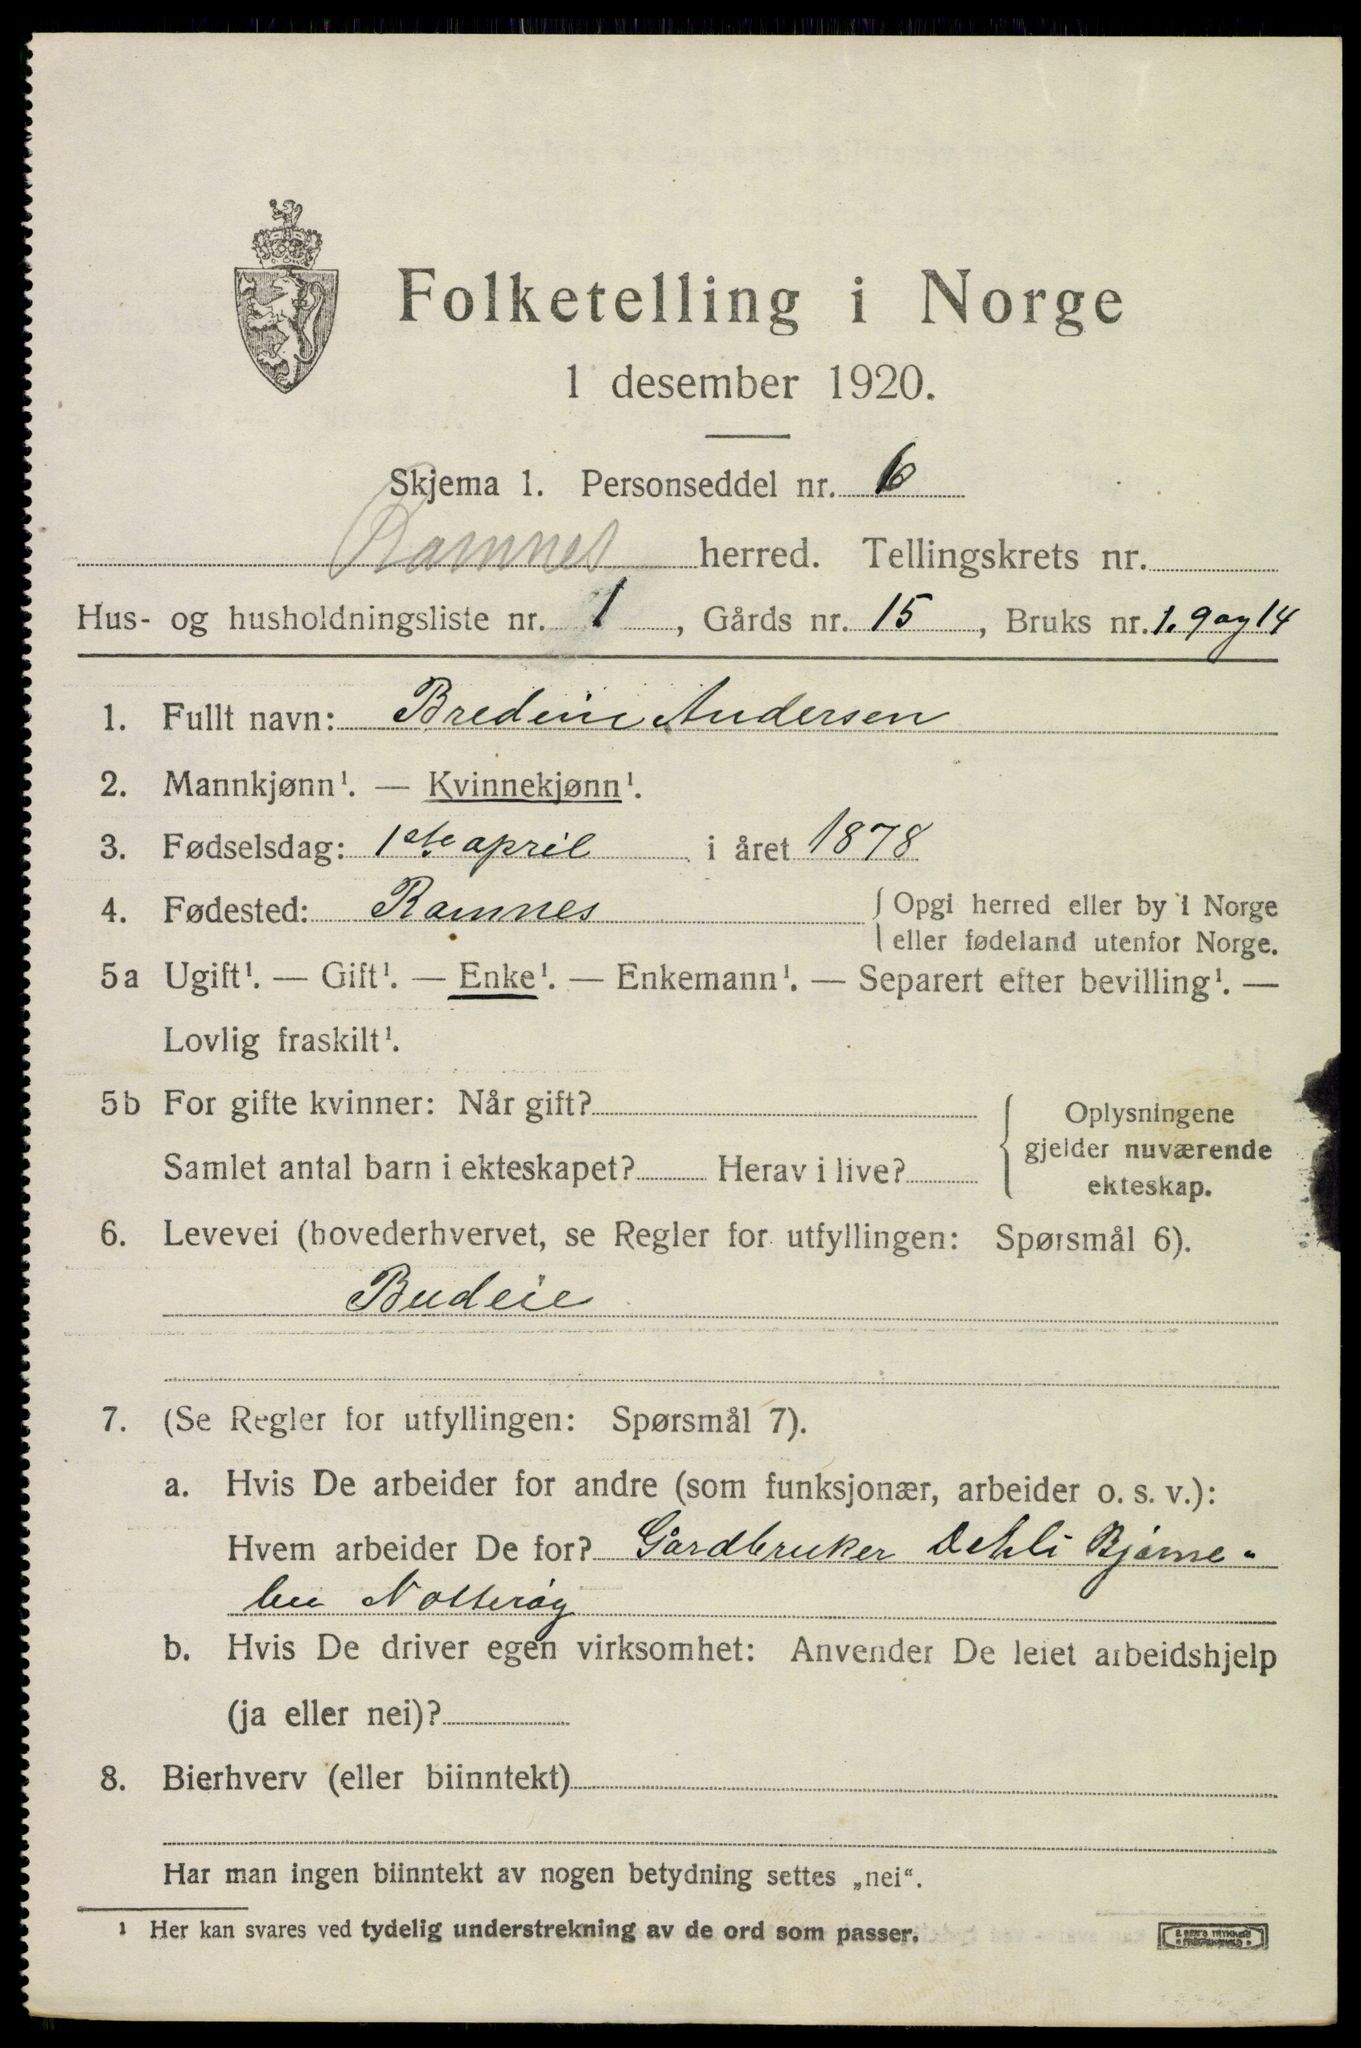 Folketelling i Norge
1 desember 1920.
Skjema 1. Personseddel nr. 6
Ramnes herred. Tellingskrets nr.
Hus- og husholdningsliste nr. 1, Gårds nr. 15, Bruks nr. 1. 9 og 14
1. Fullt navn: Bredine Andersen
2. Mannkjønn¹. — Kvinnekjønn¹.
3. Fødselsdag: 1ste april i året 1878
4. Fødested: Ramnes { Opgi herred eller by i Norge
eller fødeland utenfor Norge.
5a Ugift¹. — Gift¹. — Enke¹. — Enkemann¹. — Separert efter bevilling¹. —
Lovlig fraskilt¹.
5b For gifte kvinner: Når gift?
Samlet antal barn i ekteskapet? Herav i live?
{ Oplysningene
gjelder nuværende
ekteskap.
6. Levevei (hovederhvervet, se Regler for utfyllingen: Spørsmål 6).
Budeie
7. (Se Regler for utfyllingen: Spørsmål 7).
a. Hvis De arbeider for andre (som funksjonær, arbeider o. s. v.):
Hvem arbeider De for? Gårdbruker Dehli Bjørne-
bu Notterøy
b. Hvis De driver egen virksomhet: Anvender De leiet arbeidshjelp
(ja eller nei)?
8. Bierhverv (eller biinntekt)
Har man ingen biinntekt av nogen betydning settes „nei“.
¹ Her kan svares ved tydelig understrekning av de ord som passer.